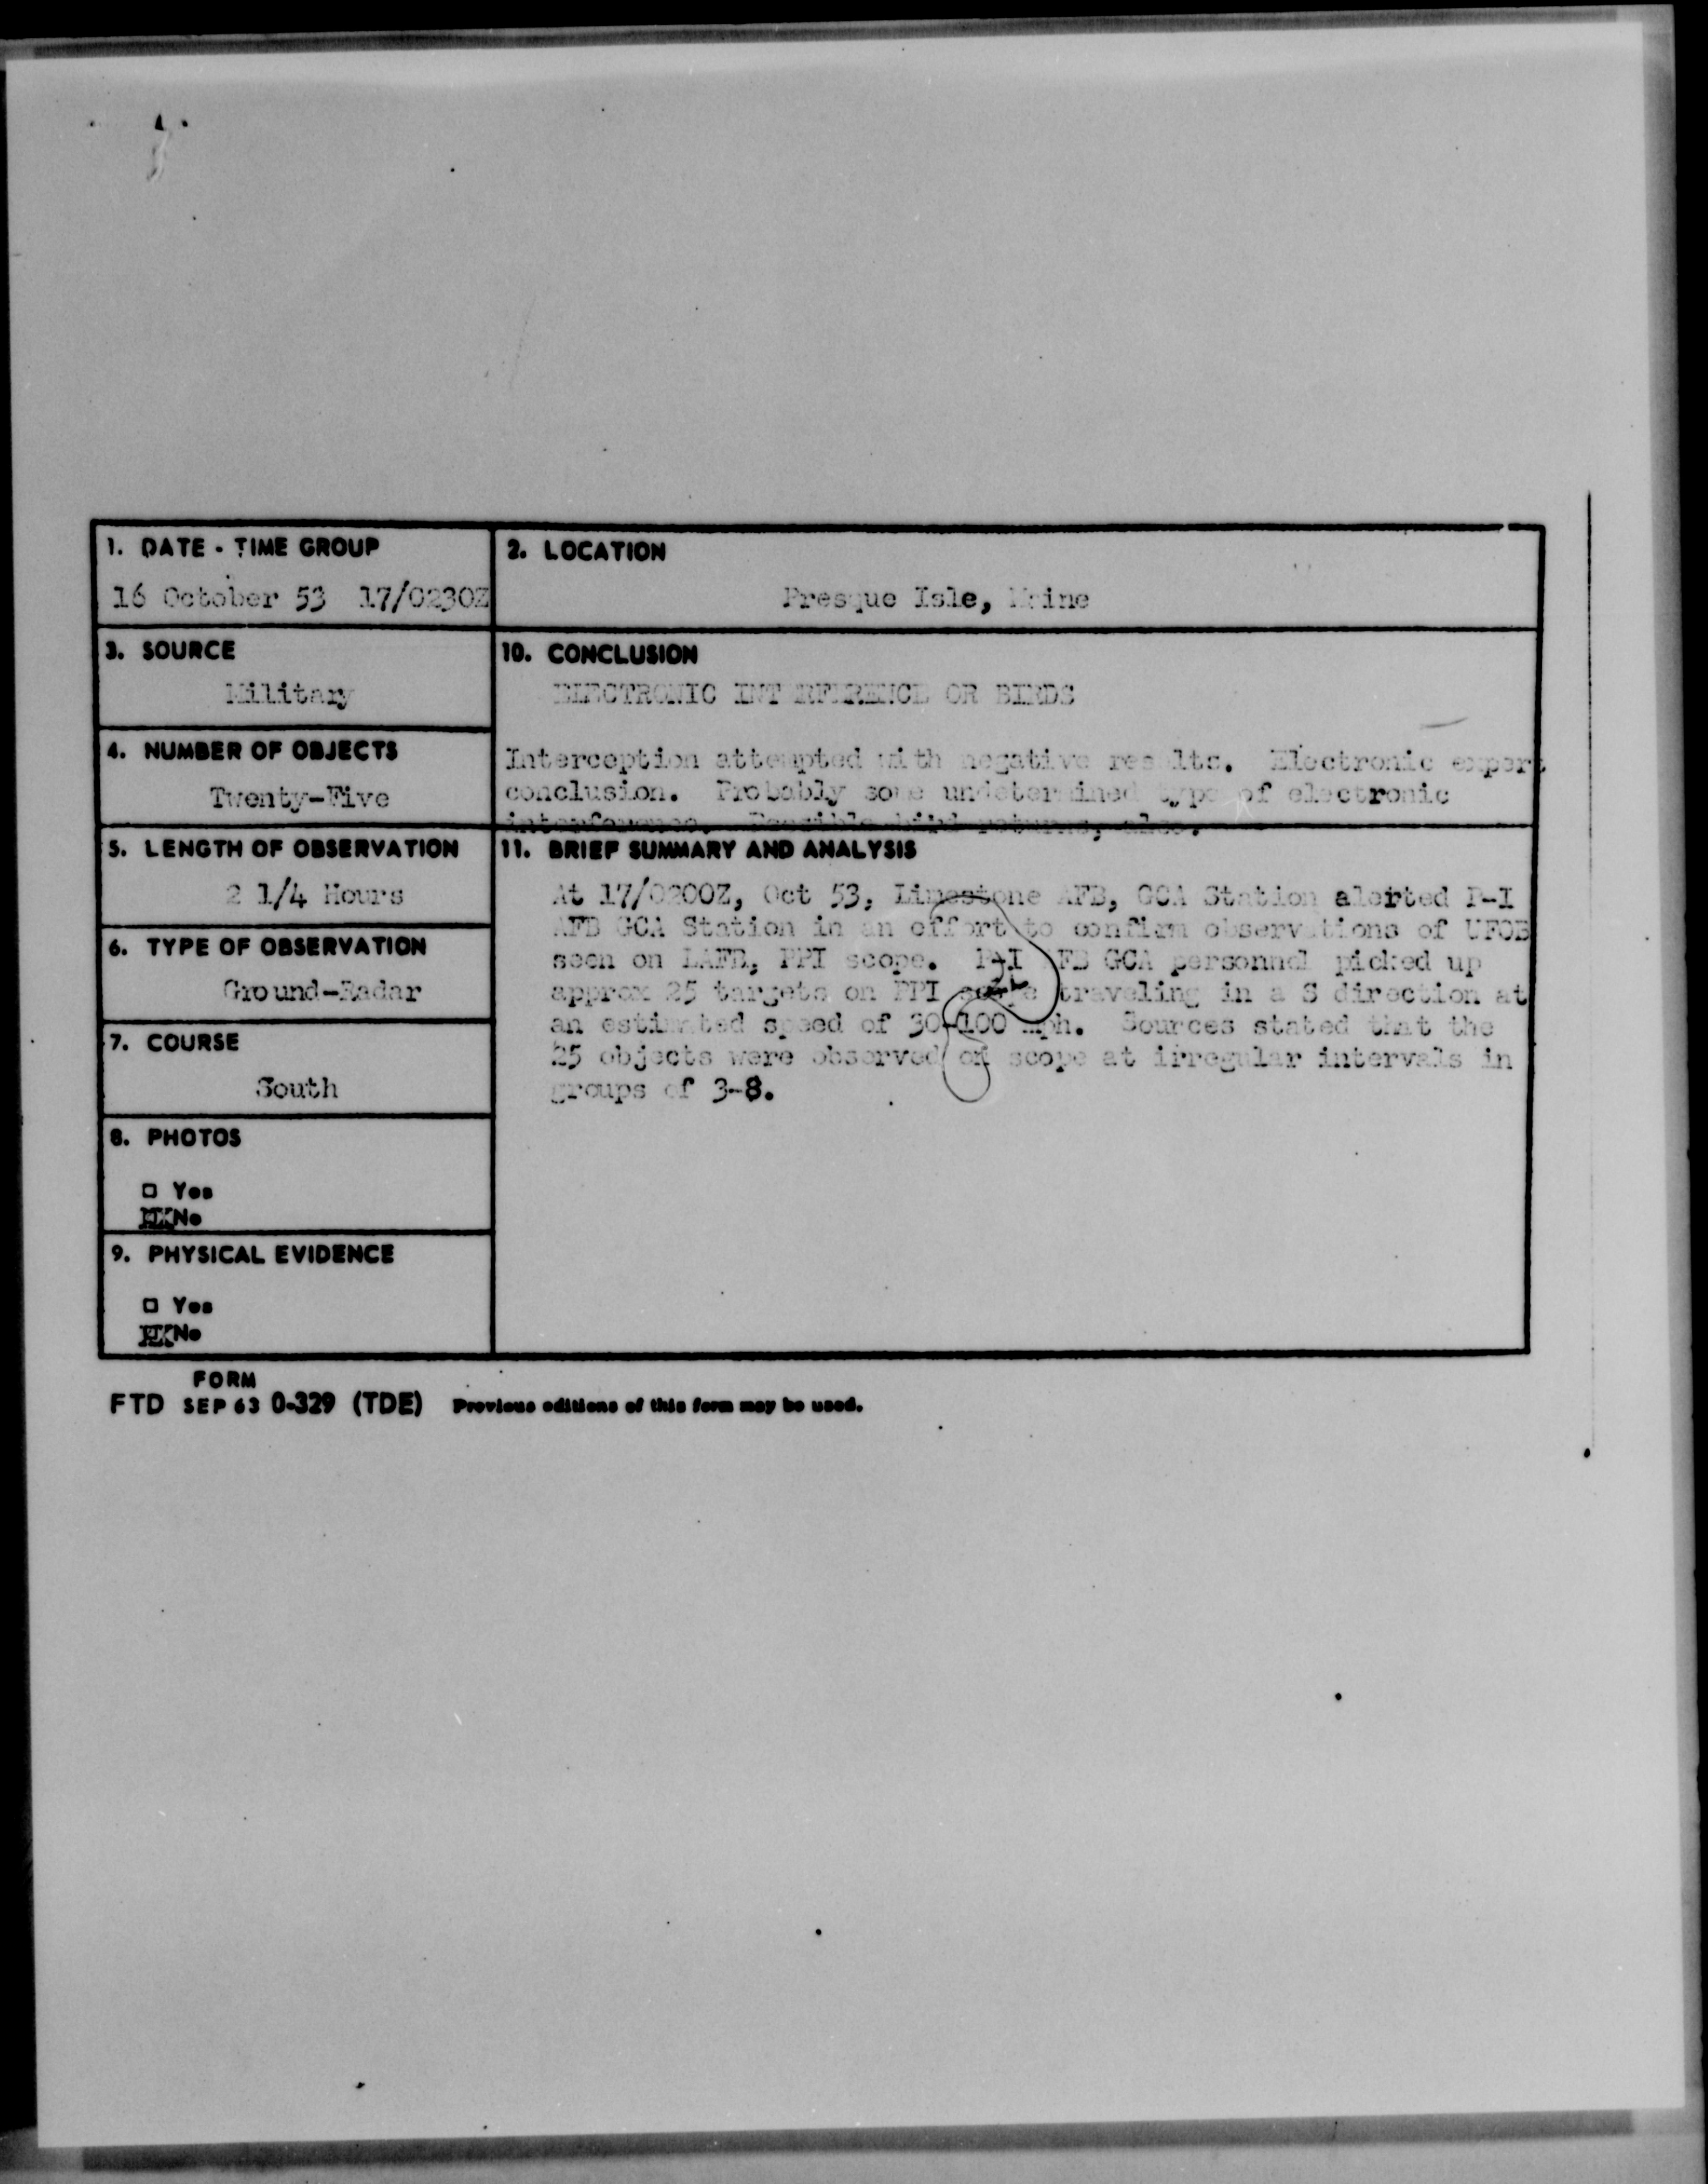 1. DATE - TIME GROUP
16 October 53 17/0230Z
2. LOCATION
Presque Isle, Maine
3. SOURCE
Military
10. CONCLUSION
ELECTRONIC INTERFERENCE OR BIRDS
Interception attempted with negative results. Electronic expert
conclusion. Probably some undetermined type of electronic
interference. Possible bird returns, also.
4. NUMBER OF OBJECTS
Twenty-Five
5. LENGTH OF OBSERVATION
2 1/4 Hours
11. BRIEF SUMMARY AND ANALYSIS
At 17/0200Z, Oct 53, Limestone AFB, GCA Station alerted P-I
AFB GCA Station in an effort to confirm observations of UFOB
seen on LAFB, PPI scope. P-I AFB GCA personnel picked up
approx 25 targets on PPI scope traveling in a S direction at
an estimated speed of 30-100 mph. Sources stated that the
25 objects were observed on scope at irregular intervals in
groups of 3-8.
6. TYPE OF OBSERVATION
Ground-Radar
7. COURSE
South
8. PHOTOS
□ Yes
No
9. PHYSICAL EVIDENCE
□ Yes
No
FORM
FTD SEP 63 0-329 (TDE) Previous editions of this form may be used.